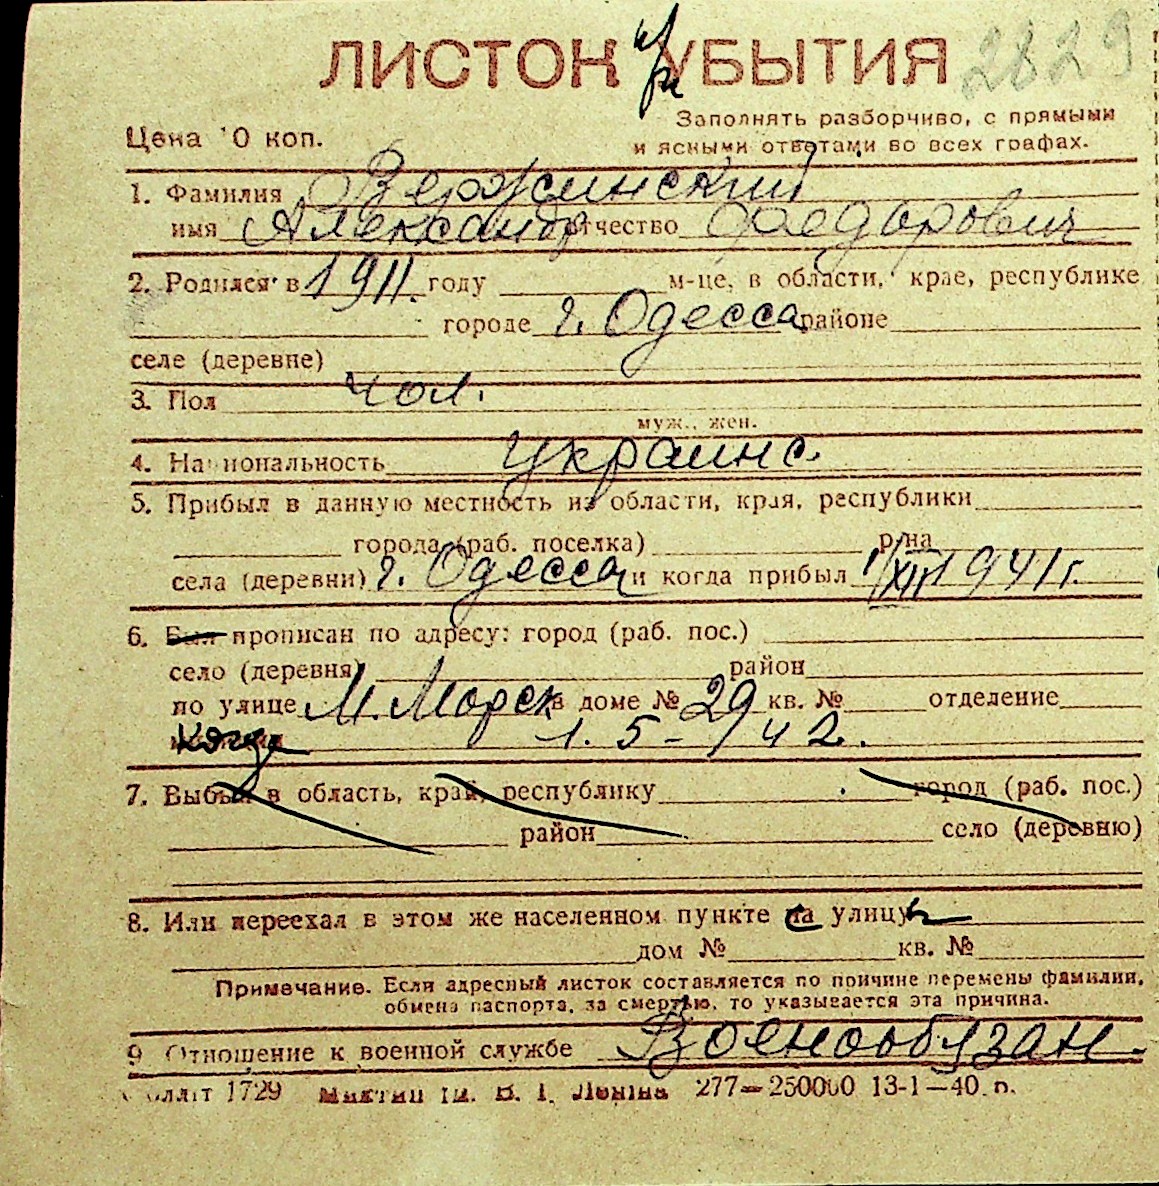 2829
ЛИСТОК при УБЫТИЯ
Цена 10 коп.
Заполнять разборчиво, с прямыми
и ясными ответами во всех графах.
1. Фамилия Вержинский
имя Александр отчество Федорович
2. Родился в 1911. году м-це, в области, крае, республике
городе г. Одесса районе
селе (деревне)
3. Пол чол.
муж., жен.
4. Национальность украинс.
5. Прибыл в данную местность из области, края, республики
города (раб. поселка) р-на
села (деревни) г. Одесса и когда прибыл 1/XII 1941 г.
6. Был прописан по адресу: город (раб. пос.)
село (деревня) район
по улице М. Морск в доме № 29 кв. № отделение
когда 1. 5 - 942.
7. Выбыл в область, край, республику город (раб. пос.)
район село (деревню)
8. Или переехал в этом же населенном пункте с улицы
дом № кв. №
Примечание. Если адресный листок составляется по причине перемены фамилии,
обмена паспорта, за смертью, то указывается эта причина.
9 Отношение к военной службе Военнообязан.
1729 В. І. Леніна 277—250000 13-1—40 п.